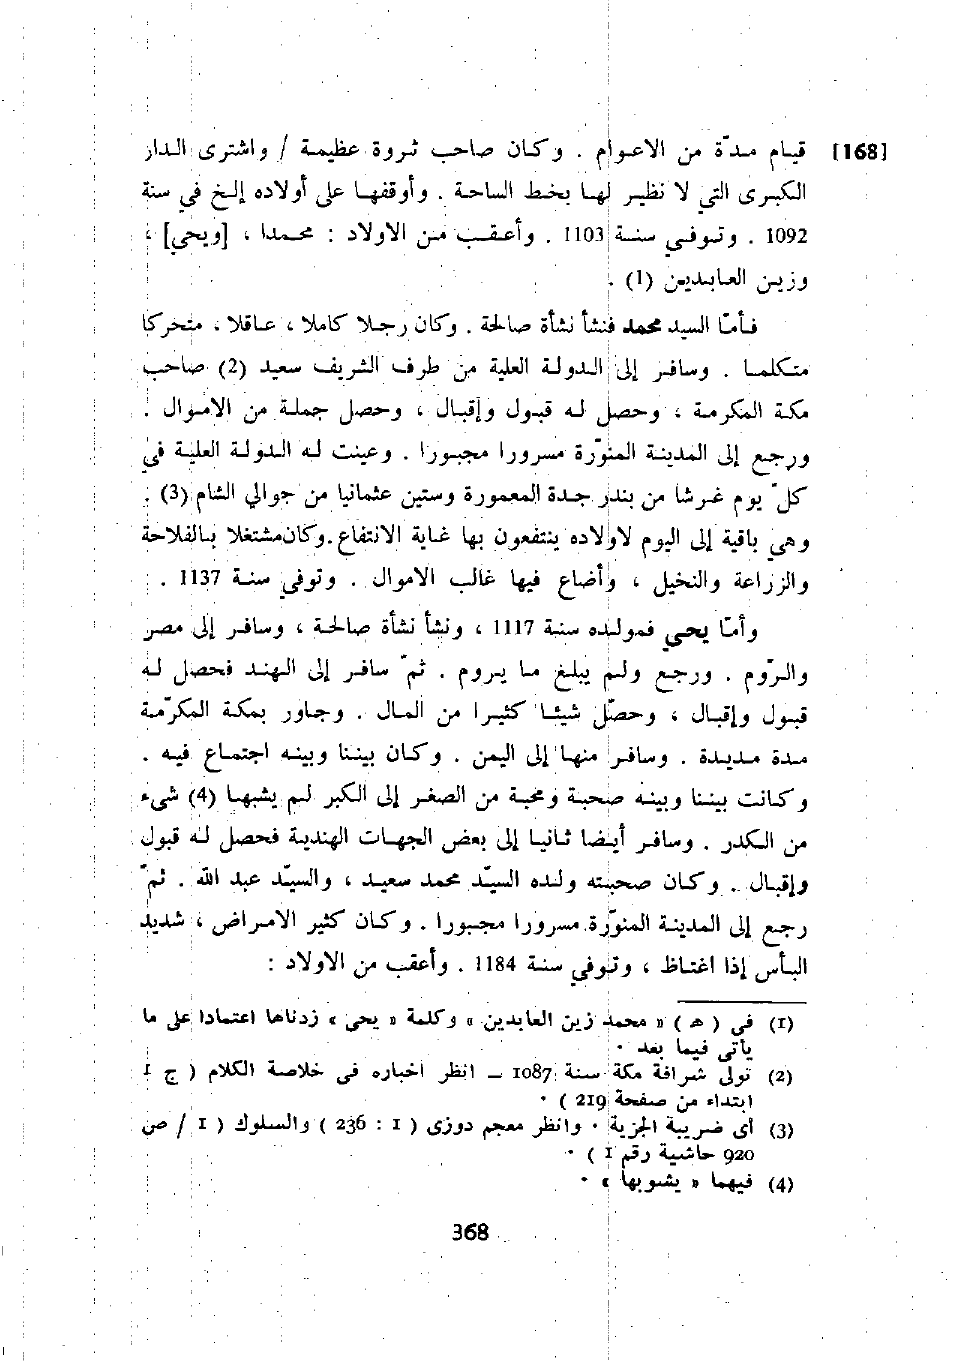 [168] قيام مدّة من الاعوام . وكان صاحب ثروة عظيمة / واشترى الدار
الكبرى التي لا نظير لها بخط الساحة . وأوقفها على أولاده إلخ في سنة
1092 . وتوفي سنة 1103 . وأعقب من الاولاد : محمدا ، [ويحي] ،
وزين العابدين (1) .
فأمّا السيد محمد فنشأ نشأة صالحة . وكان رجلا كاملا ، عاقلا ، متحركا
متكلما . وسافر إلى الدولة العلية من طرف الشريف سعيد (2) صاحب
مكة المكرمة ، وحصل له قبول وإقبال ، وحصل جملة من الاموال .
ورجع إلى المدينة المنوّرة مسرورا مجبورا . وعينت له الدولة العلية في
كلّ يوم غرشا من بندر جدة المعمورة وستين عثمانيا من جوالي الشام (3) .
وهي باقية إلى اليوم لاولاده ينتفعون بها غاية الانتفاع . وكان مشتغلا بالفلاحة
والزراعة والنخيل ، وأضاع فيها غالب الاموال . وتوفي سنة 1137 .
وأمّا يحي فمولده سنة 1117 ، ونشأ نشأة صالحة ، وسافر إلى مصر
والرّوم . ورجع ولم يبلغ ما يروم . ثمّ سافر إلى الهند فحصل له
قبول وإقبال ، وحصّل شيئا كثيرا من المال . وجاور بمكة المكرّمة
مدة مديدة . وسافر منها إلى اليمن . وكان بيننا وبينه اجتماع فيه .
وكانت بيننا وبينه صحبة ومحبة من الصغر إلى الكبر لم يشبها (4) شيء
من الكدر . وسافر أيضا ثانيا إلى بعض الجهات الهندية فحصل له قبول
وإقبال . وكان صحبته ولده السيّد محمد سعيد ، والسيّد عبد الله . ثمّ
رجع إلى المدينة المنوّرة مسرورا مجبورا . وكان كثير الامراض ، شديد
البأس إذا اغتاظ ، وتوفي سنة 1184 . وأعقب من الاولاد :
(1) في ( هـ ) « محمد زين العابدين » وكلمة « يحي » زدناها اعتمادا على ما
يأتي فيما بعد .
(2) تولى شرافة مكة سنة 1087 – انظر اخباره في خلاصة الكلام ( ج 1
ابتداء من صفحة 219 ) .
(3) أي ضريبة الجزية . وانظر معجم دوزى ( 1 : 236 ) والسلوك ( 1 / ص
920 حاشية رقم 1 ) .
(4) فيهما « يشوبها » .
368